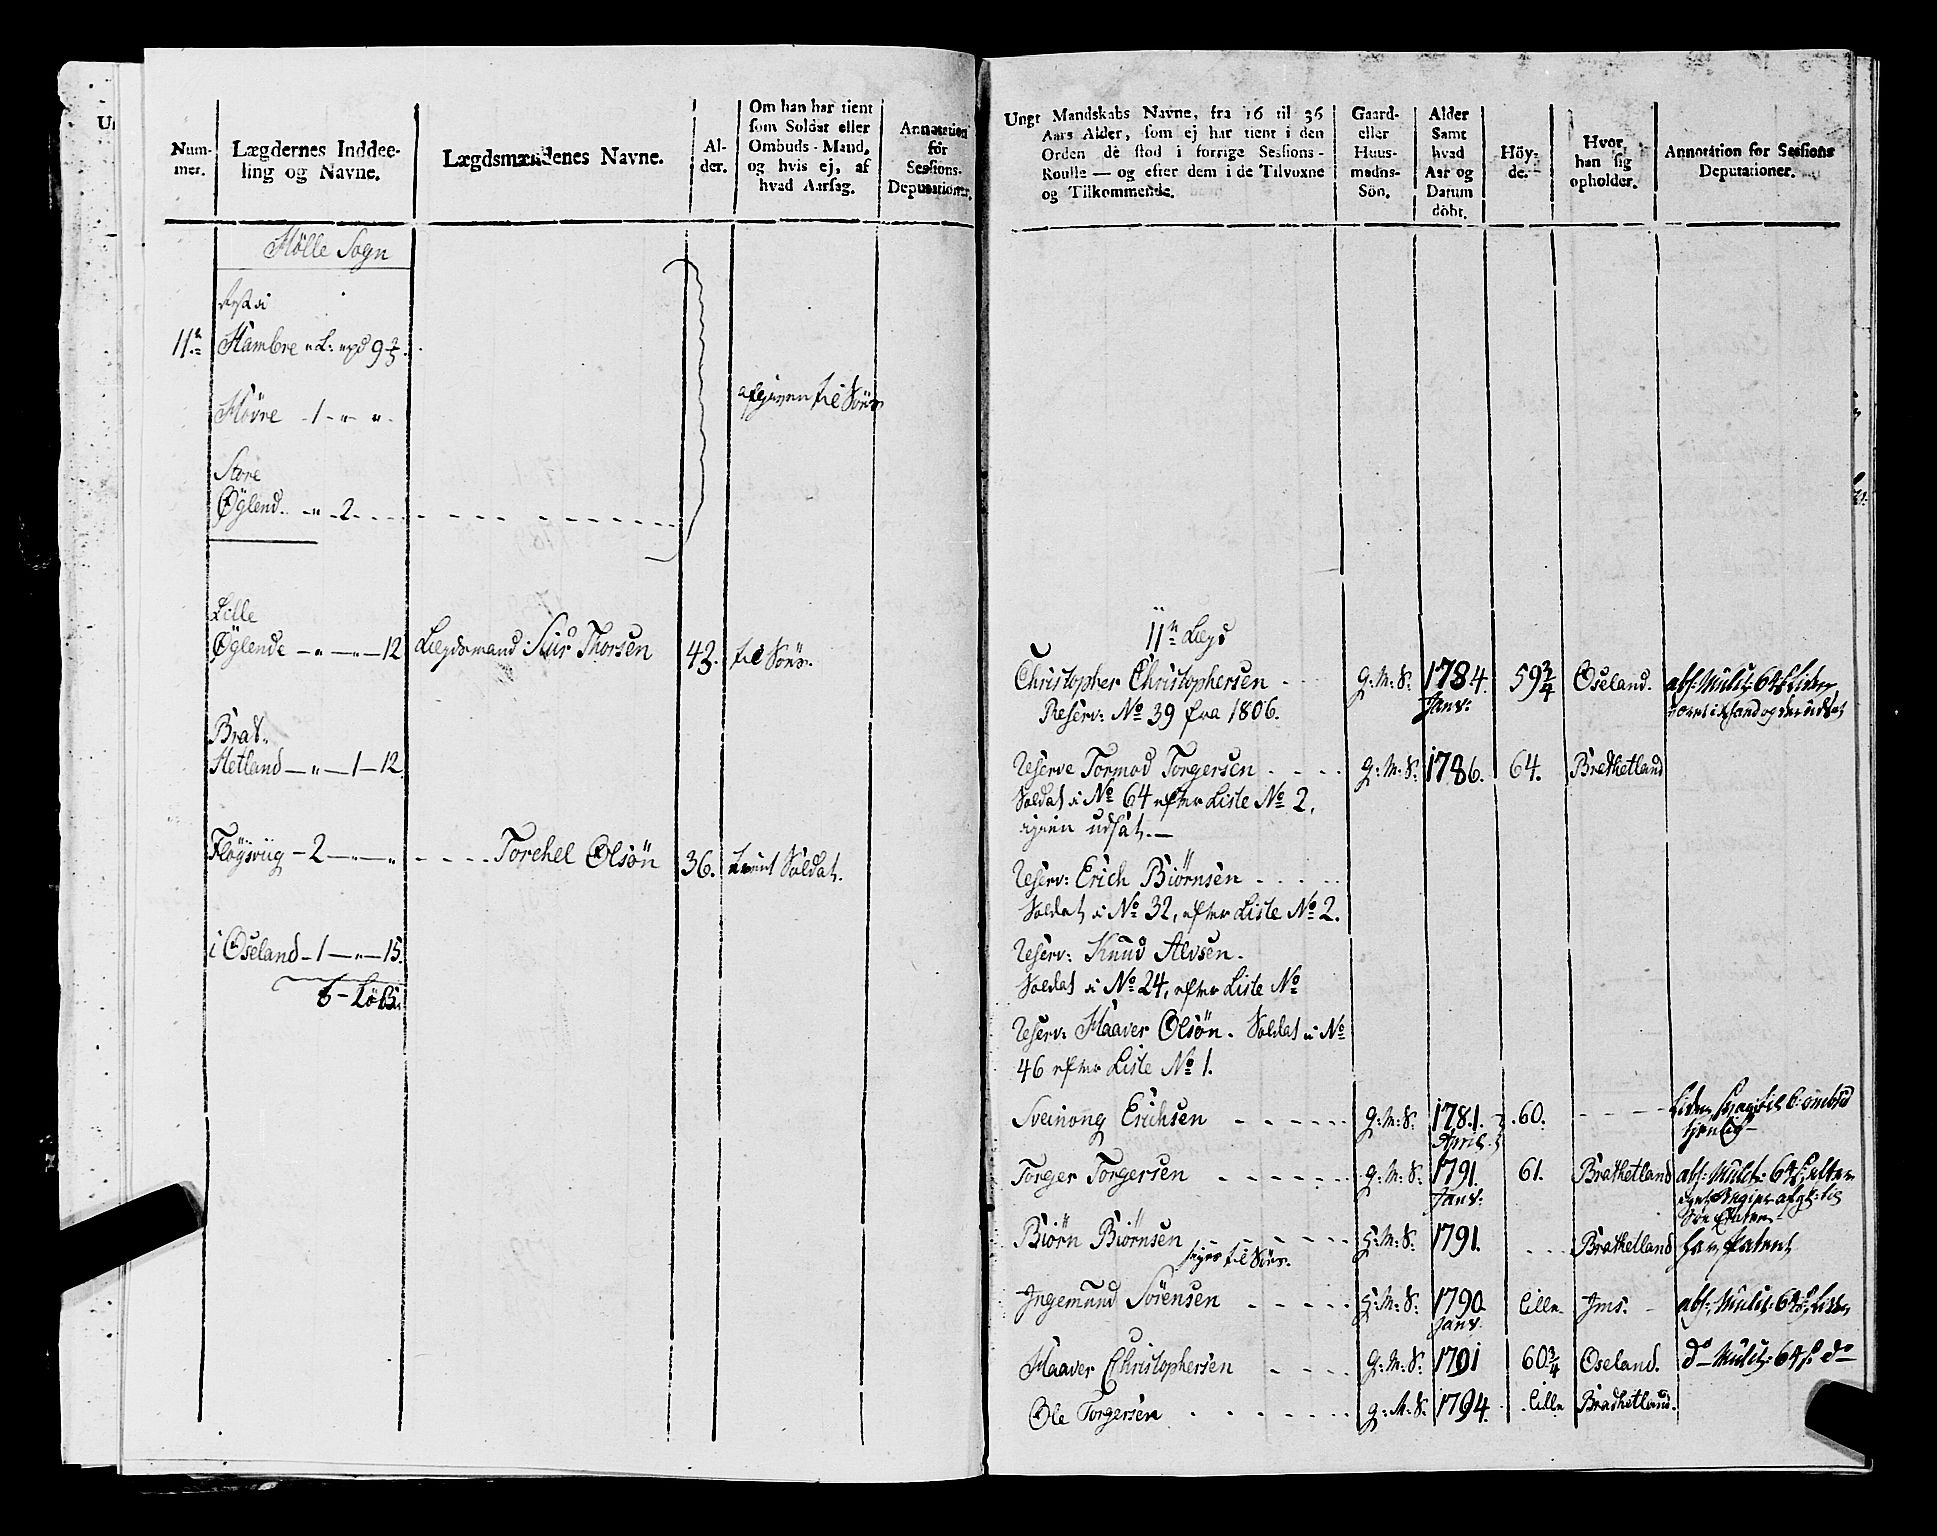 Num-
mer.
Lægdernes Inddee-
ling og Navne.
Lægdsmændenes Navne.
Al-
der.
Om han har tient
som Soldat eller
Ombuds-Mand,
og hvis ej, af
hvad Aarsag.
Annotation
för
Sessions-
Deputationer.
Hölle Sogn
11te
Hambre 9 2/3
afgiven til Söes
Höure - 1 - " "
Store
Öglend - " - 2
Lille
Öglende - " - " - 12
Lægdsmand: Siur Thorsen
43.
til Söes.
Brat-
Hetland - " - 1 - 12
Flögsviig - 2 - " - "
Torchel Olsön
36.
tient Soldat.
i Oseland - 1 - " - 15.
6 - Löb
Ungt Mandskabs Navne, fra 16 til 36
Aars Alder, som ej har tient i den
Orden de stod i forrige Sessions-
Roulle — og efter dem i de Tilvoxne
og Tilkommende.
Gaard-
eller
Huus-
mands-
Sön.
Alder
Samt
hvad
Aar og
Datum
döbt.
Höy-
de.
Hvor
han sig
opholder.
Annotation for Sessions
Deputationer.
11te Lægd
Christopher Christophersen
G: M: S:
1784.
59 3/4
Oseland.
Reserv: No 39 fra 1806.
Janv:
Reserve Tormod Torgersen
G: M: S:
1786.
64.
Brathetland
Soldat i No 64 efter Liste No 2.
igien udsat.
Reserv: Erich Biörnsen
Soldat i No 32, efter Liste No 2.
Reserv: Knud Alvsen.
Soldat i No 24, efter Liste No
Reserv: Haaver Olsön. Soldat i No
46 efter Liste No 1.
Sveinong Erichsen
G: M: S:
1781.
60.
April
tienlig
Torger Torgersen
G: M: S:
1791.
61.
Brathetland
Janv:
Biörn Biörnsen
H: M: S:
1791.
Brathetland
har Patent
til Söes.
Ingemund Sörensen
H: M: S:
1790.
lille
Ims.
Janv.
Haaver Christophersen
G: M: S:
1791
60 3/4
Oseland.
Ole Torgersen
G: M: S:
1794.
lille
Bradhetland.